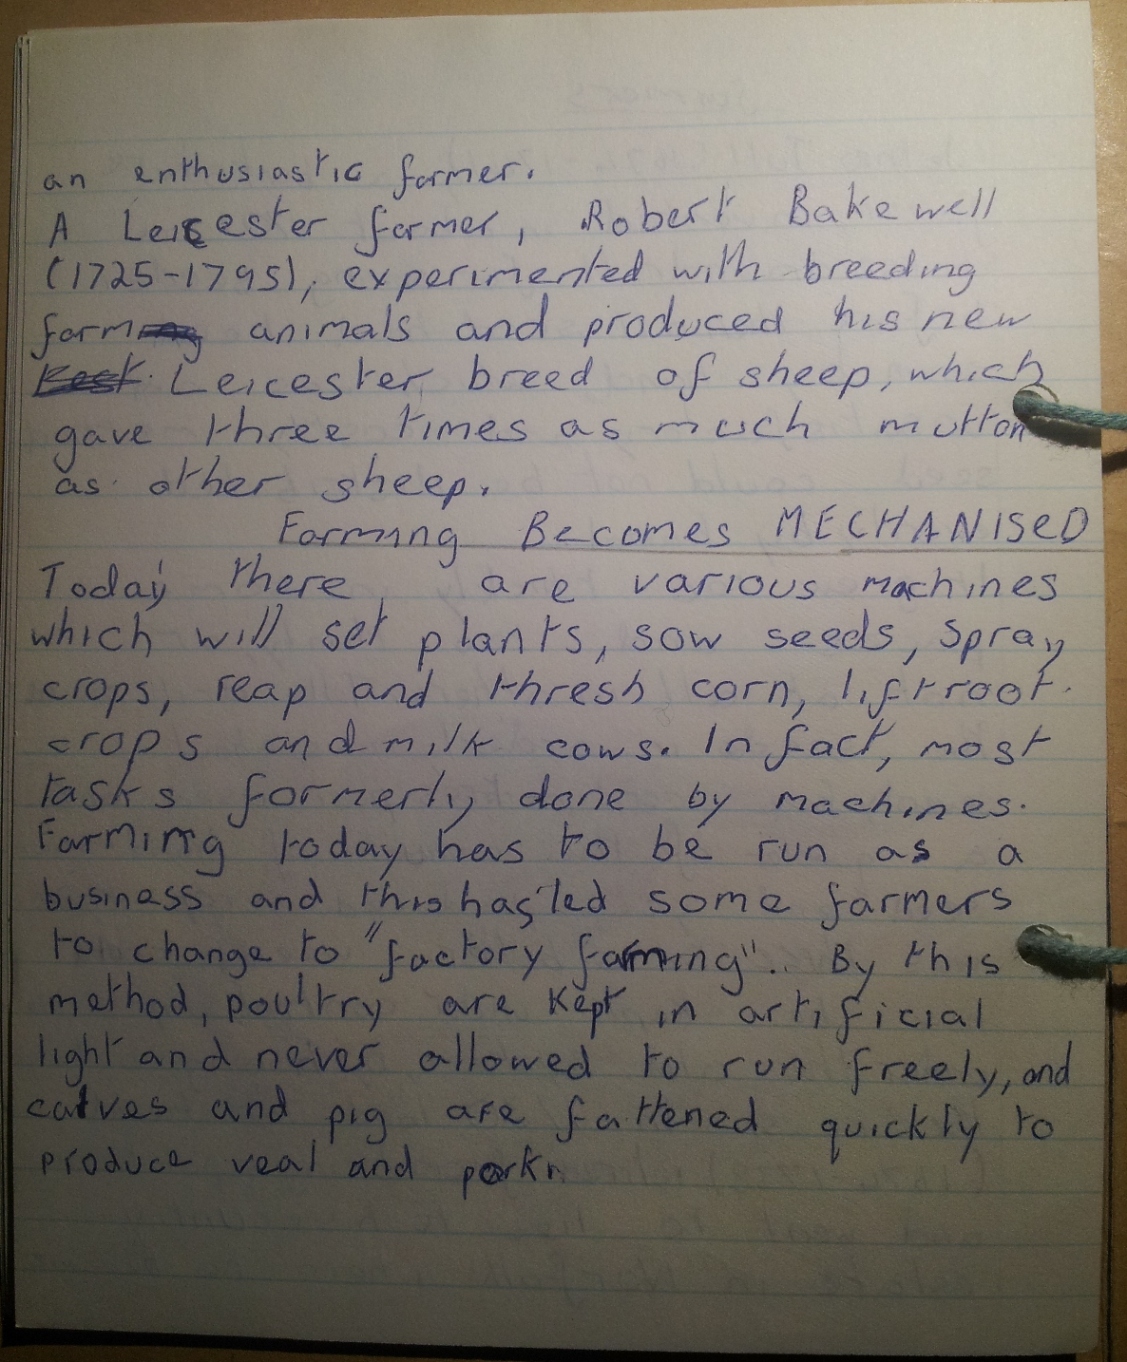 an enthusiastic farmer.
A Leicester farmer, Robert Bakewell
(1725-1795), experimented with breeding
farm animals and produced his new
Leicester breed of sheep, which
gave three times as much mutton
as other sheep.
Farming Becomes MECHANISeD
Today there are various machines
which will set plants, sow seeds, spray
crops, reap and thresh corn, lift root
crops and milk cows. In fact, most
tasks formerly done by machines.
Farming today has to be run as a
business and this has led some farmers
to change to "factory farming". By this
method, poultry are kept in artificial
light and never allowed to run freely, and
calves and pig are fattened quickly to
produce veal and pork